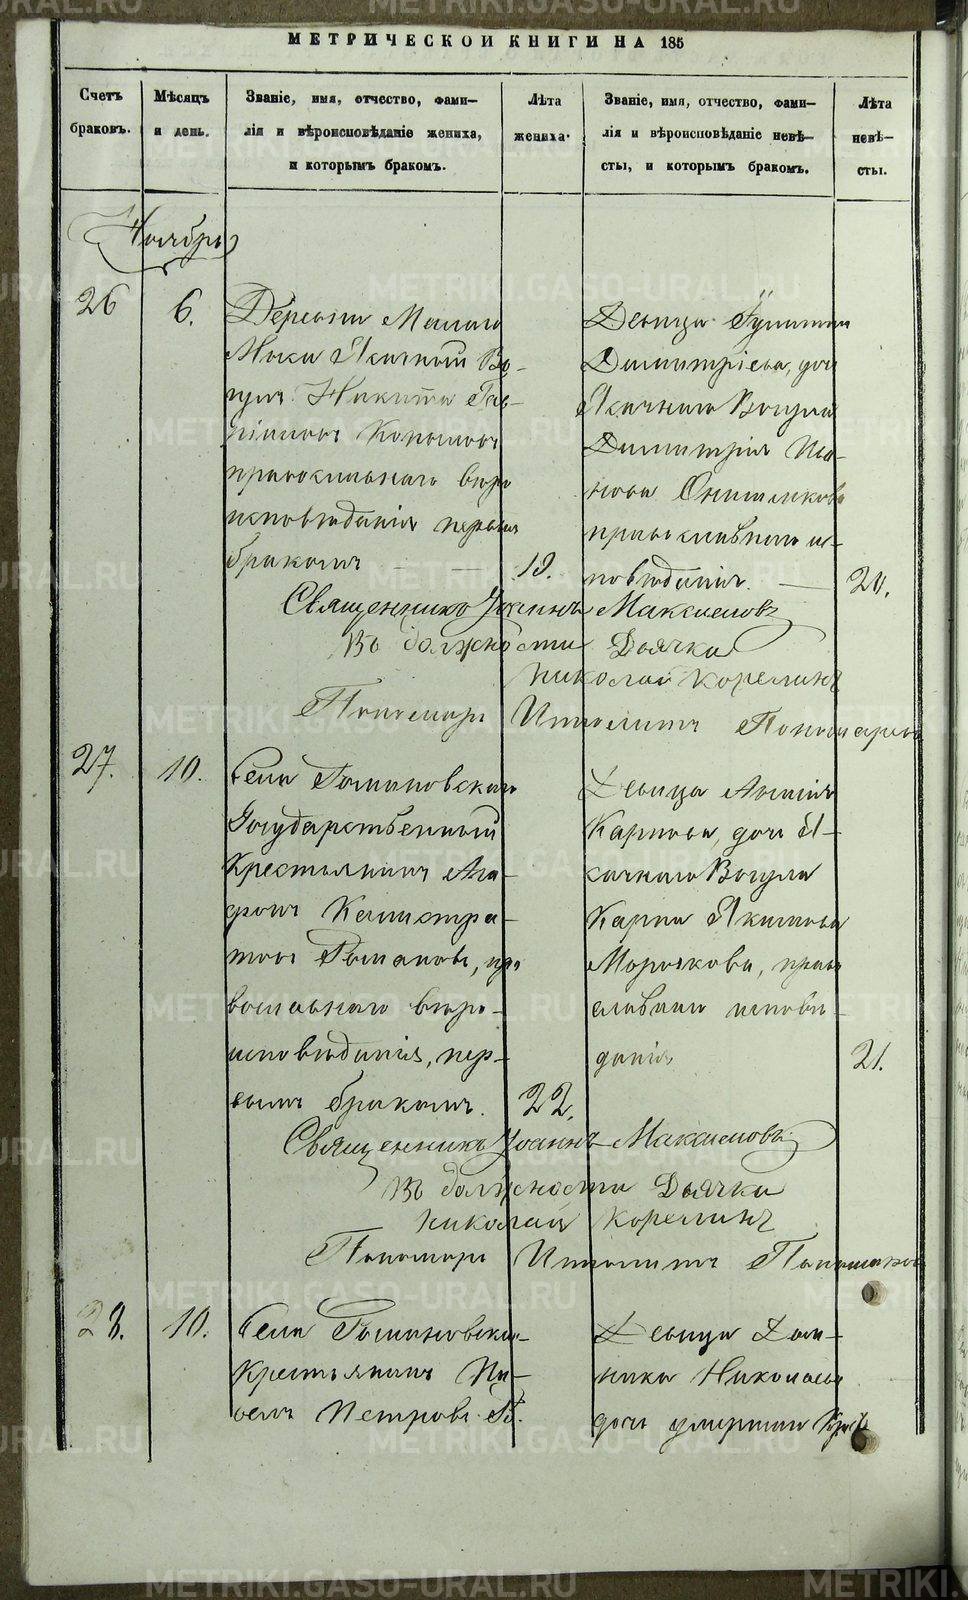 МЕТРИЧЕСКОЙ КНИГИ НА 185
Счетъ браковъ.
Мѣсяцъ и день.
Званіе, имя, отчество, фами-
лія и вѣроисповѣданіе жениха,
и которымъ бракомъ.
Лѣта жениха.
Званіе, имя, отчество, фами-
лія и вѣроисповѣданіе невѣ-
сты, и которымъ бракомъ.
Лѣта невѣ-
сты.
Ноябрь
26
6.
Деревни
Ясачный Во-
гулъ Никита Гав-
ріиловъ
православнаго вѣро
исповѣданія первымъ
бракомъ
19.
Девица
Димитріева, дочь
Ясачнаго Вогула
Димитрія Ива-
нова
православнаго ис-
повѣданія.
20.
Священникъ Іоаннъ Максимовъ
Въ должности Дьячка
Николай Корелинъ
Пономарь Ипполитъ Пономаревъ
27.
10.
Села Романовскаго
Государственный
Крестьянинъ Ага-
фонъ Калистра-
товъ Романовъ, пра
вославнаго вѣро-
исповѣданія, пер-
вымъ бракомъ.
22.
Девица
Карпова, дочь Я-
сачнаго Вогула
Карпа Якимова
, право
славнаго исповѣ-
данія
21.
Священникъ Іоаннъ Максимовъ
Въ должности Дьячка
Николай Корелинъ
Пономарь Ипполитъ Пономаревъ
28.
10.
Села Романовска-
Крестьянинъ Па-
велъ Петровъ
Девица Дом-
ника Николаева
дочь умершаго
METRIKI.GASO-URAL.RU